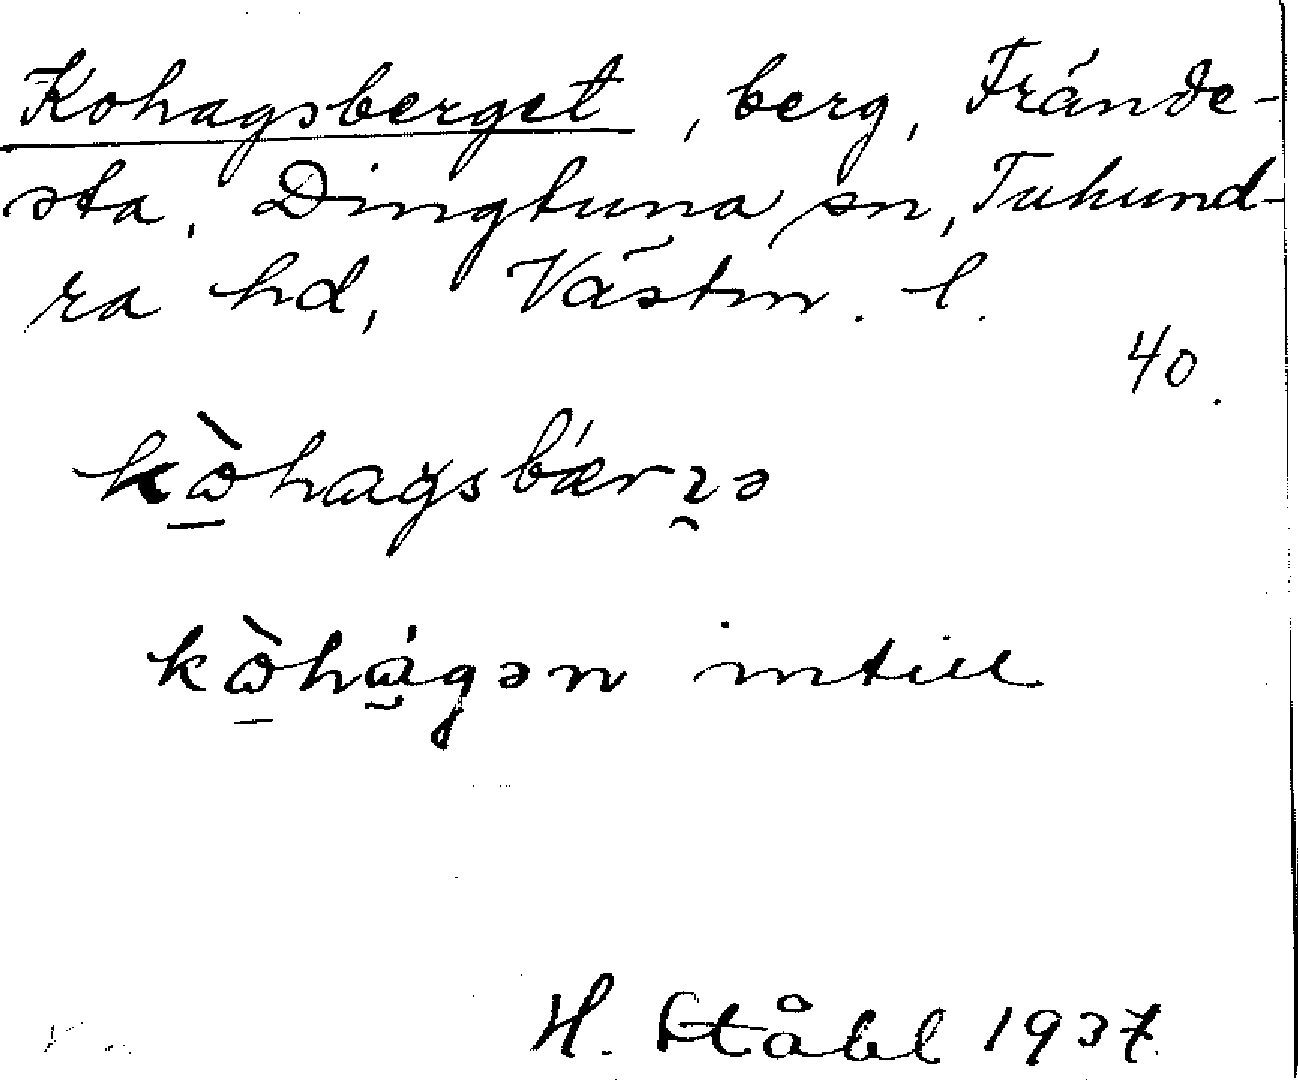 Kohagsberget, berg, Frände-
sta, Dingtuna sn, Tuhund-
ra hd, Västm. l.
40.
kὼ̱hagsbærɿ̯ə
kὼ̱hágən intill
H. Ståhl 1937